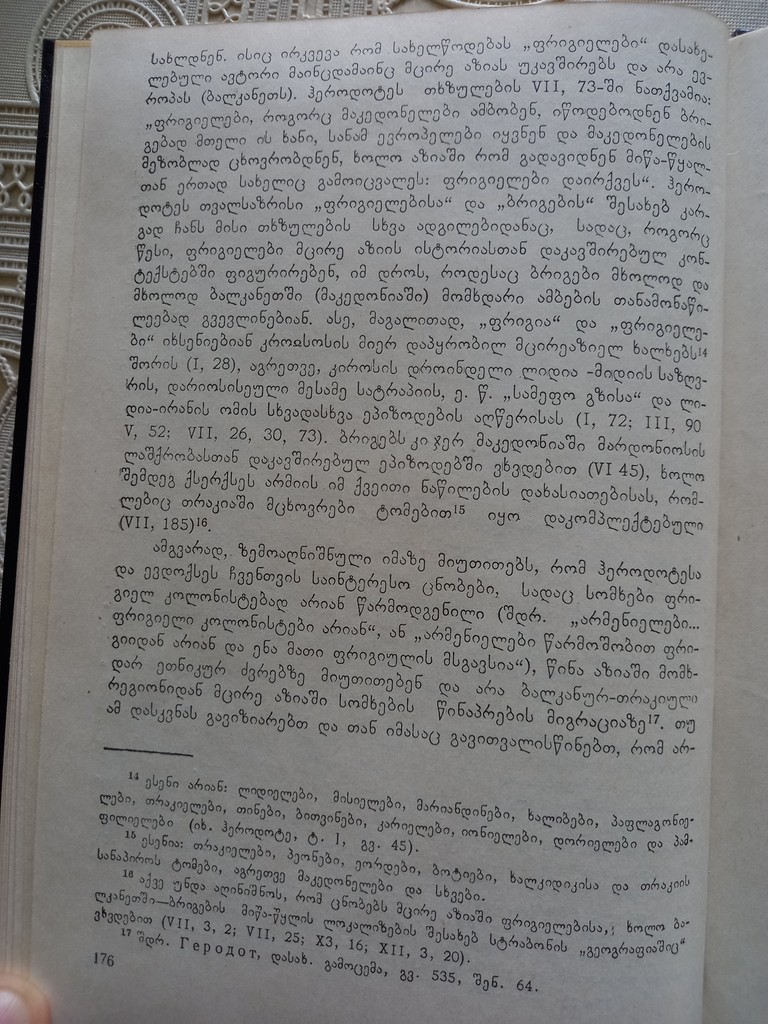 სახლდნენ. ისიც ირკვევა რომ სახელწოდებას „ფრიგიელები“ დასახე-
ლებული ავტორი მაინცდამაინც მცირე აზიას უკავშირებს და არა ევ-
როპას (ბალკანეთს). ჰეროდოტეს თხზულების VII, 73-ში ნათქვამია:
„ფრიგიელები, როგორც მაკედონელები ამბობენ, იწოდებოდნენ ბრი-
გებად მთელი ის ხანი, სანამ ევროპელები იყვნენ და მაკედონელების
მეზობლად ცხოვრობდნენ, ხოლო აზიაში რომ გადავიდნენ მიწა-წყალ-
თან ერთად სახელიც გამოიცვალეს: ფრიგიელები დაირქვეს“. ჰერო-
დოტეს თვალსაზრისი „ფრიგიელებისა“ და „ბრიგების“ შესახებ კარ-
გად ჩანს მისი თხზულების სხვა ადგილებიდანაც, სადაც, როგორც
წესი, ფრიგიელები მცირე აზიის ისტორიასთან დაკავშირებულ კონ-
ტექსტებში ფიგურირებენ, იმ დროს, როდესაც ბრიგები მხოლოდ და
მხოლოდ ბალკანეთში (მაკედონიაში) მომხდარი ამბების თანამონაწი-
ლეებად გვევლინებიან. ასე, მაგალითად, „ფრიგია“ და „ფრიგიელე-
ბი“ იხსენიებიან კროჲსოსის მიერ დაპყრობილ მცირეაზიელ ხალხებს¹⁴
შორის (I, 28), აგრეთვე, კიროსის დროინდელი ლიდია -მიდიის საზღვ-
რის, დარიოსისეული მესამე სატრაპიის, ე. წ. „სამეფო გზისა“ და ლი-
დია-ირანის ომის სხვადასხვა ეპიზოდების აღწერისას (I, 72; III, 90
V, 52; VII, 26, 30, 73). ბრიგებს კი ჯერ მაკედონიაში მარდონიოსის
ლაშქრობასთან დაკავშირებულ ეპიზოდებში ვხვდებით (VI 45), ხოლო
შემდეგ ქსერქსეს არმიის იმ ქვეითი ნაწილების დახასიათებისას, რომ-
ლებიც თრაკიაში მცხოვრები ტომებით¹⁵ იყო დაკომპლექტებული
(VII, 185)¹⁶.
ამგვარად, ზემოაღნიშნული იმაზე მიუთითებს, რომ ჰეროდოტესა
და ევდოქსეს ჩვენთვის საინტერესო ცნობები, სადაც სომხები ფრი-
გიელ კოლონისტებად არიან წარმოდგენილი (შდრ. „არმენიელები...
ფრიგიელი კოლონისტები არიან“, ან „არმენიელები წარმოშობით ფრი-
გიიდან არიან და ენა მათი ფრიგიულის მსგავსია“), წინა აზიაში მომხ-
დარ ეთნიკურ ძვრებზე მიუთითებენ და არა ბალკანურ-თრაკიული
რეგიონიდან მცირე აზიაში სომხების წინაპრების მიგრაციაზე¹⁷. თუ
ამ დასკვნას გავიზიარებთ და თან იმასაც გავითვალისწინებთ, რომ არ-
¹⁴ ესენი არიან: ლიდიელები, მისიელები, მარიანდინები, ხალიბები, პაფლაგონიე-
ლები, თრაკიელები, თინები, ბითვინები, კარიელები, იონიელები, დორიელები და პამ-
ფილიელები (იხ. ჰეროდოტე, ტ. I, გვ. 45).
¹⁵ ესენია: თრაკიელები, პეონები, ეორდები, ბოტიები, ხალკიდიკისა და თრაკიის
სანაპიროს ტომები, აგრეთვე მაკედონელები და სხვები.
¹⁶ აქვე უნდა აღინიშნოს, რომ ცნობებს მცირე აზიაში ფრიგიელებისა,; ხოლო ბა-
ლკანეთში—ბრიგების მიწა-წყლის ლოკალიზების შესახებ სტრაბონის „გეოგრაფიაშიც“
ვხვდებით (VII, 3, 2; VII, 25; X3, 16; XII, 3, 20).
¹⁷ შდრ. Геродот, დასახ. გამოცემა, გვ. 535, შენ. 64.
176